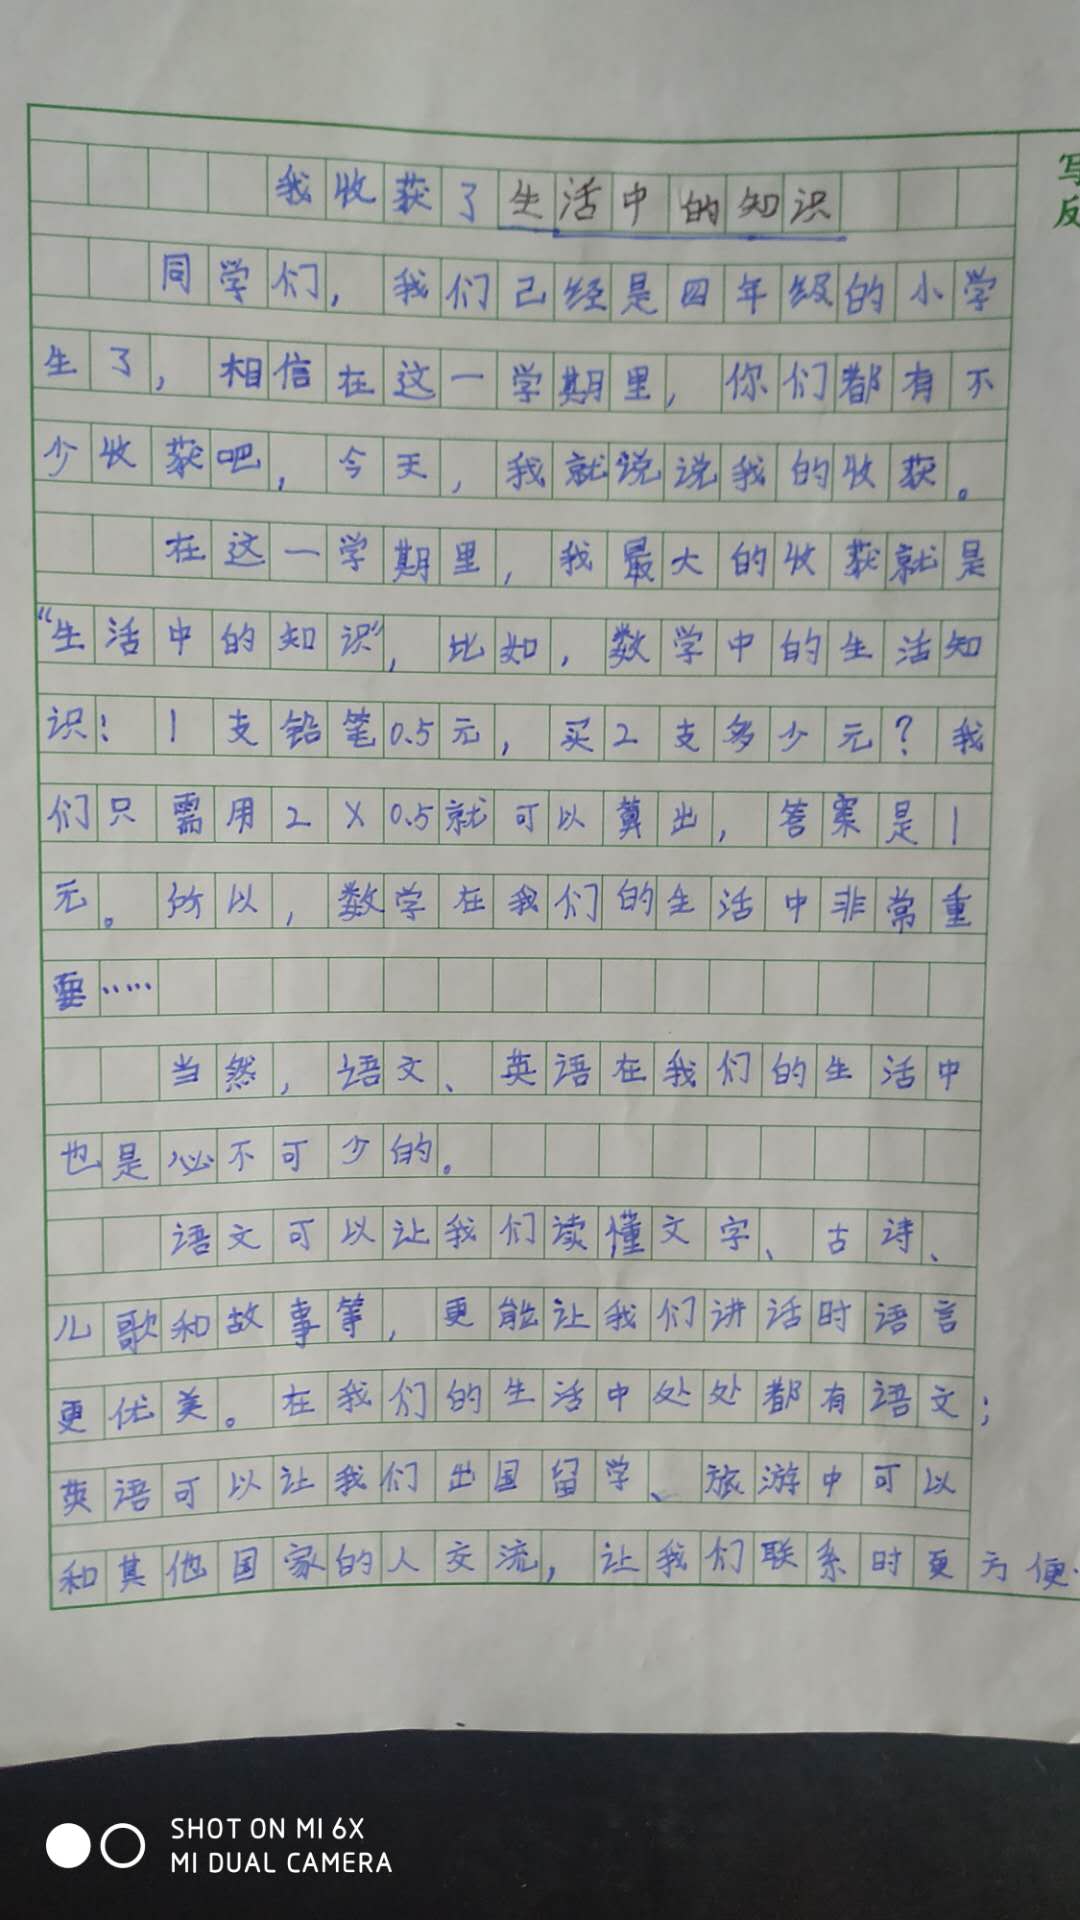 我收获了生活中的知识
同学们，我们己经是四年级的小学
生了，相信在这一学期里，你们都有不
少收获吧，今天，我就说说我的收获。
在这一学期里，我最大的收获就是
“生活中的知识”，比如，数学中的生活知
识！1支铅笔0.5元，买2支多少元？我
们只需用2×0.5就可以算出，答案是1
元。所以，数学在我们的生活中非常重
要……
当然，语文、英语在我们的生活中
也是必不可少的。
语文可以让我们读懂文字、古诗、
儿歌和故事等，更能让我们讲话时语言
更优美。在我们的生活中处处都有语文；
英语可以让我们出国留学、旅游中可以
和其他国家的人交流，让我们联系时更方便.
写
反
SHOT ON MI 6X
MI DUAL CAMERA